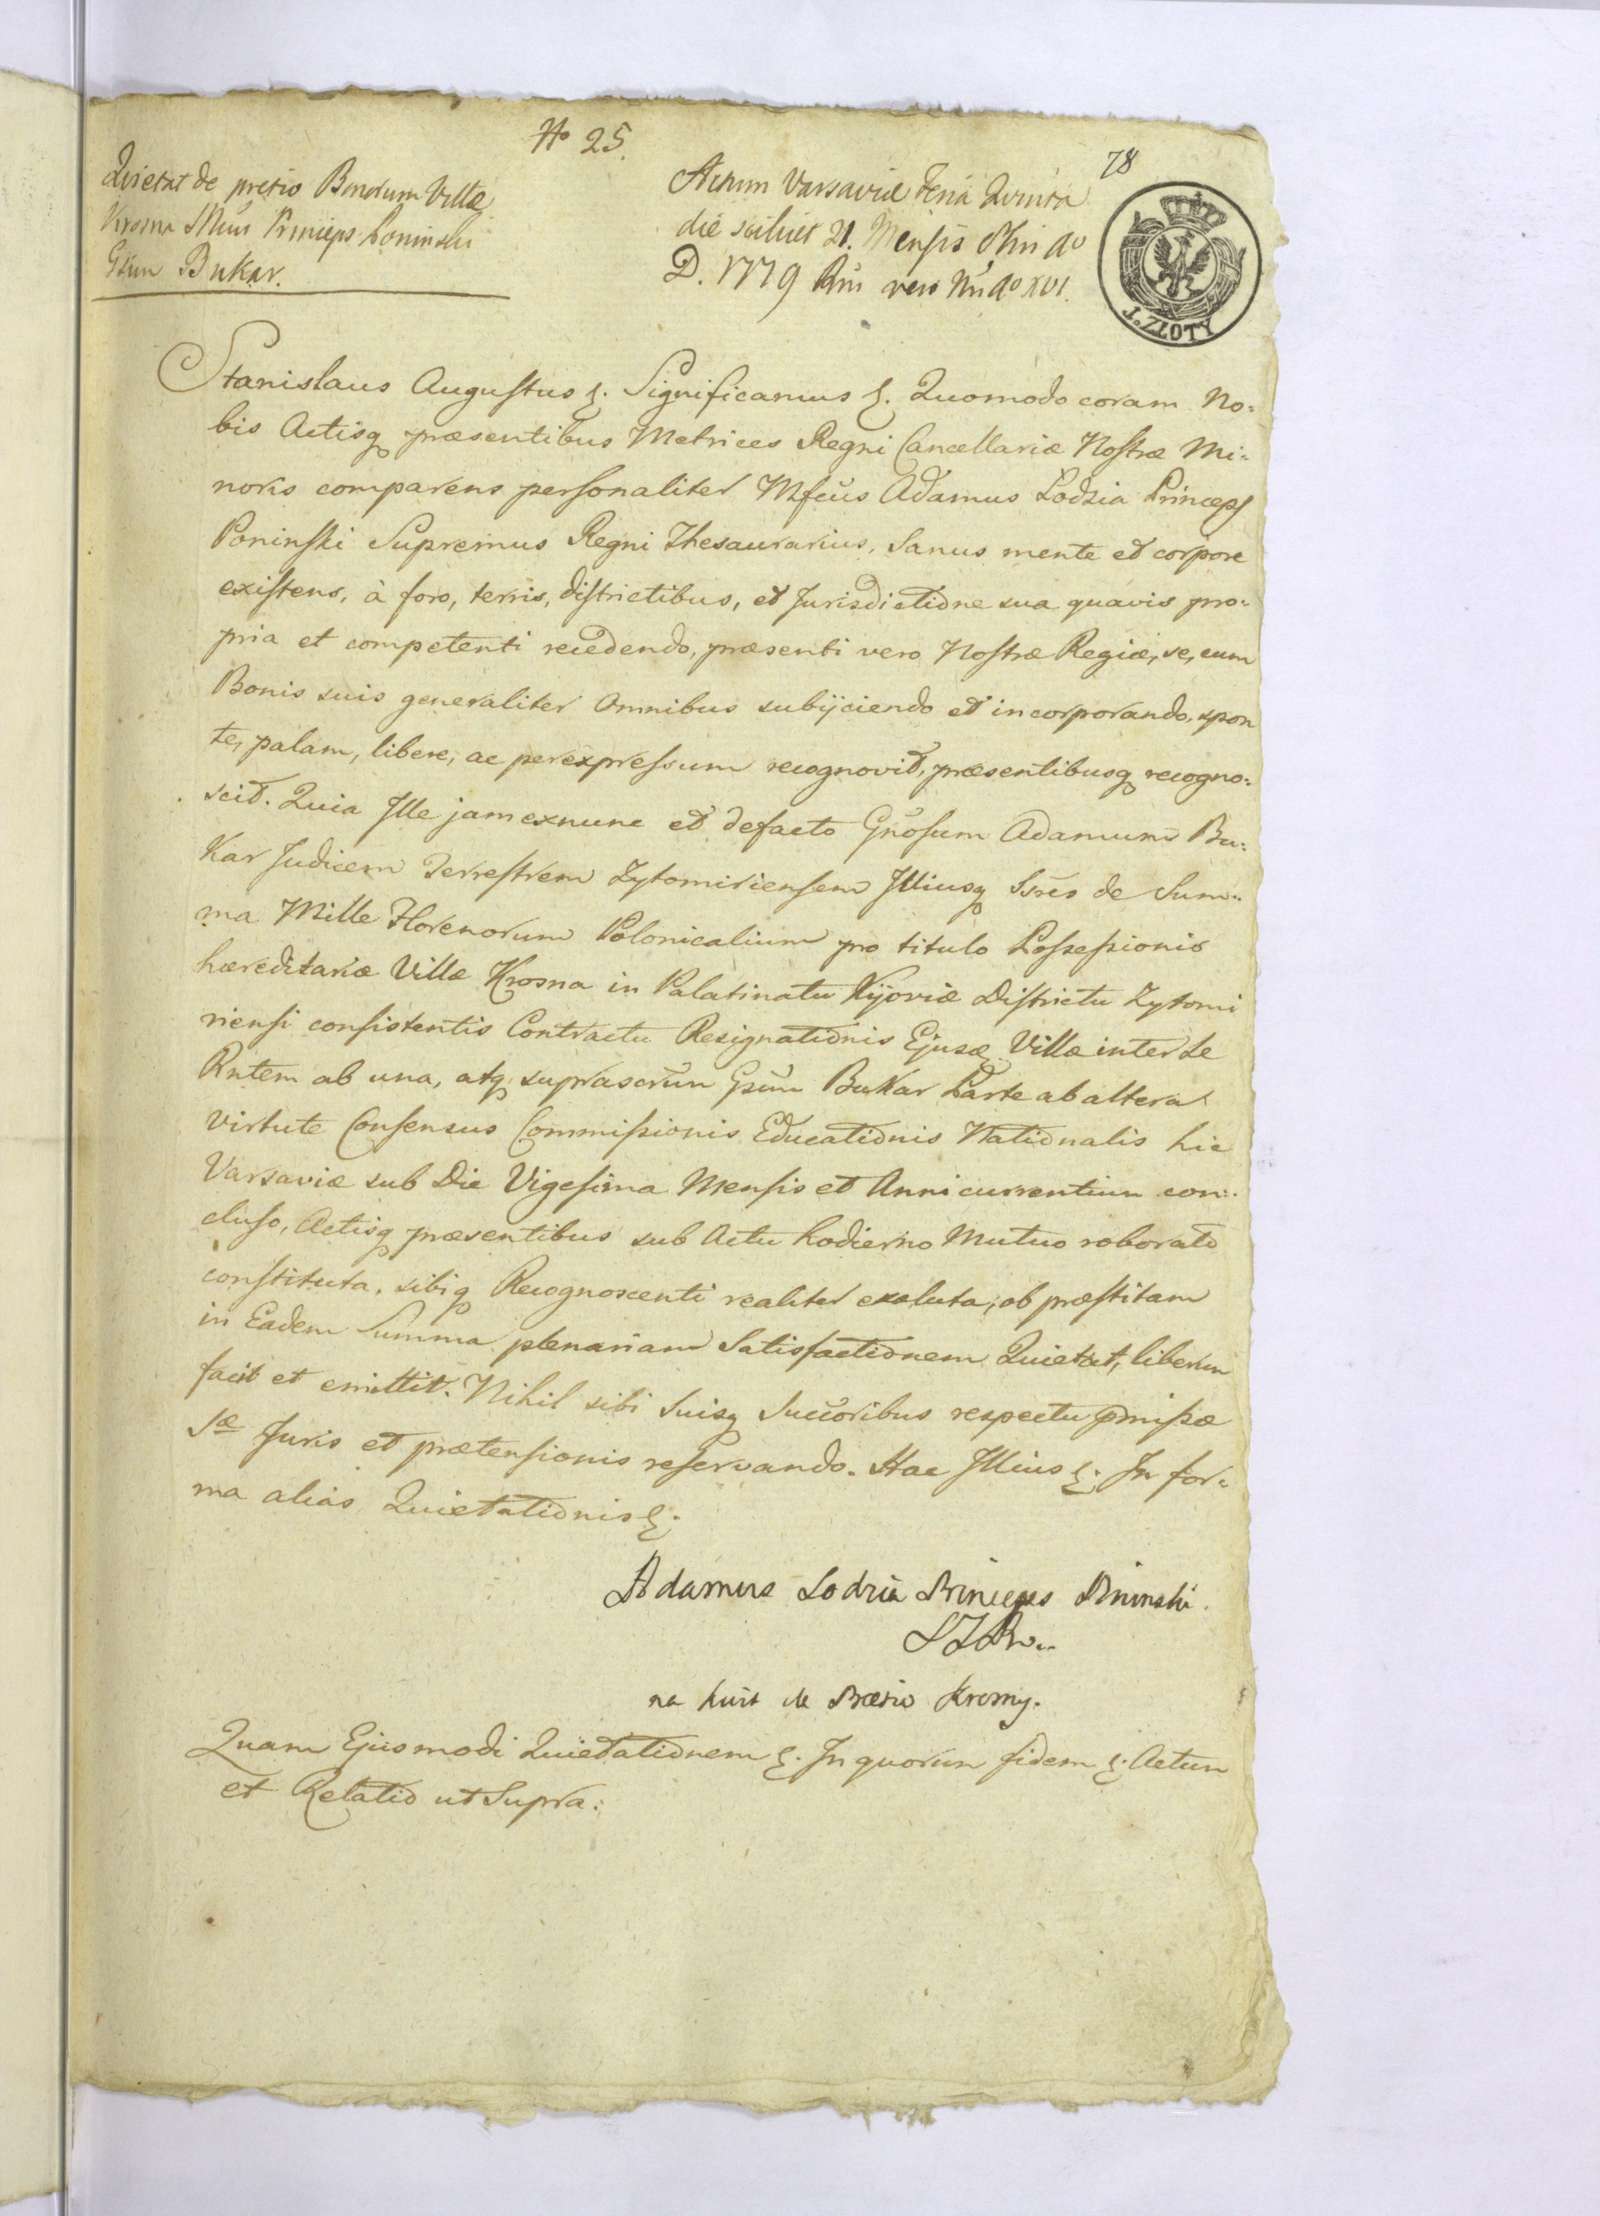 No 25.
78
Quietat de pretio Bonorum Villæ
Krosna Princeps Poninski
Gsum Bukar.
Actum Varsaviæ Feria Quinta
die scilicet 21. Mensis Xbris Ao
D. 1779 Rni vero Nri Ao XVI.
1. ZŁOTY
Stanislaus Augustus &. Significamus &. Quomodo coram No=
bis Actisq præsentibus Metrices Regni Cancellariæ Nostræ Mi=
noris comparens personaliter Mfcus Adamus Lodzia Princeps
Poninski Supremus Regni Thesaurarius, Sanus mente et corpore
existens, à foro, terris, districtibus, et Jurisdictione sua quavis pro=
pria et competenti recedendo, præsenti vero Nostræ Regiæ, se, cum
Bonis suis generaliter Omnibus subijciendo et incorporando, spon
te, palam, libere, ac perexpressum recognovit, præsentibusq recogno=
scit. Quia Ille jam exnunc et defacto Gnosum Adamum Bu=
kar Judicem Terrestrem Zytomiriensem Illiusq Ssres de Sum=
ma Mille Florenorum Polonicalium pro titulo Possessionis
hæreditariæ Villæ Krosna in Palatinatu Kijoviæ Districtu Zytomi
riensi consistentis Contractu Resignationis Ejusd Villæ inter Se
Rntem ab una, atq suprascrum Gsum Bukar Parte ab altera
virtute Consensus Commissionis Educationis Nationalis hic
Varsaviæ sub Die Vigesima Mensis et Anni currentium con=
cluso, Actisq præsentibus sub Actu hodierno Mutuo roborato
constituta, sibiq Recognoscenti realiter exoluta, ob præstitam
in Eadem Summa plenariam Satisfactionem Quietat, liberum
facit et emittit. Nihil sibi Suisq Succoribus respectu pmissæ
Sæ Juris et prætensionis reservando. Hac Illius &. In for=
ma alias Quietationis &.
Adamus Lodzia Princeps Poninski.
na kwit de Prætio Krosny.
Quam Ejusmodi Quietationem &. In quorum fidem &. Actum
et Relatio ut Supra.